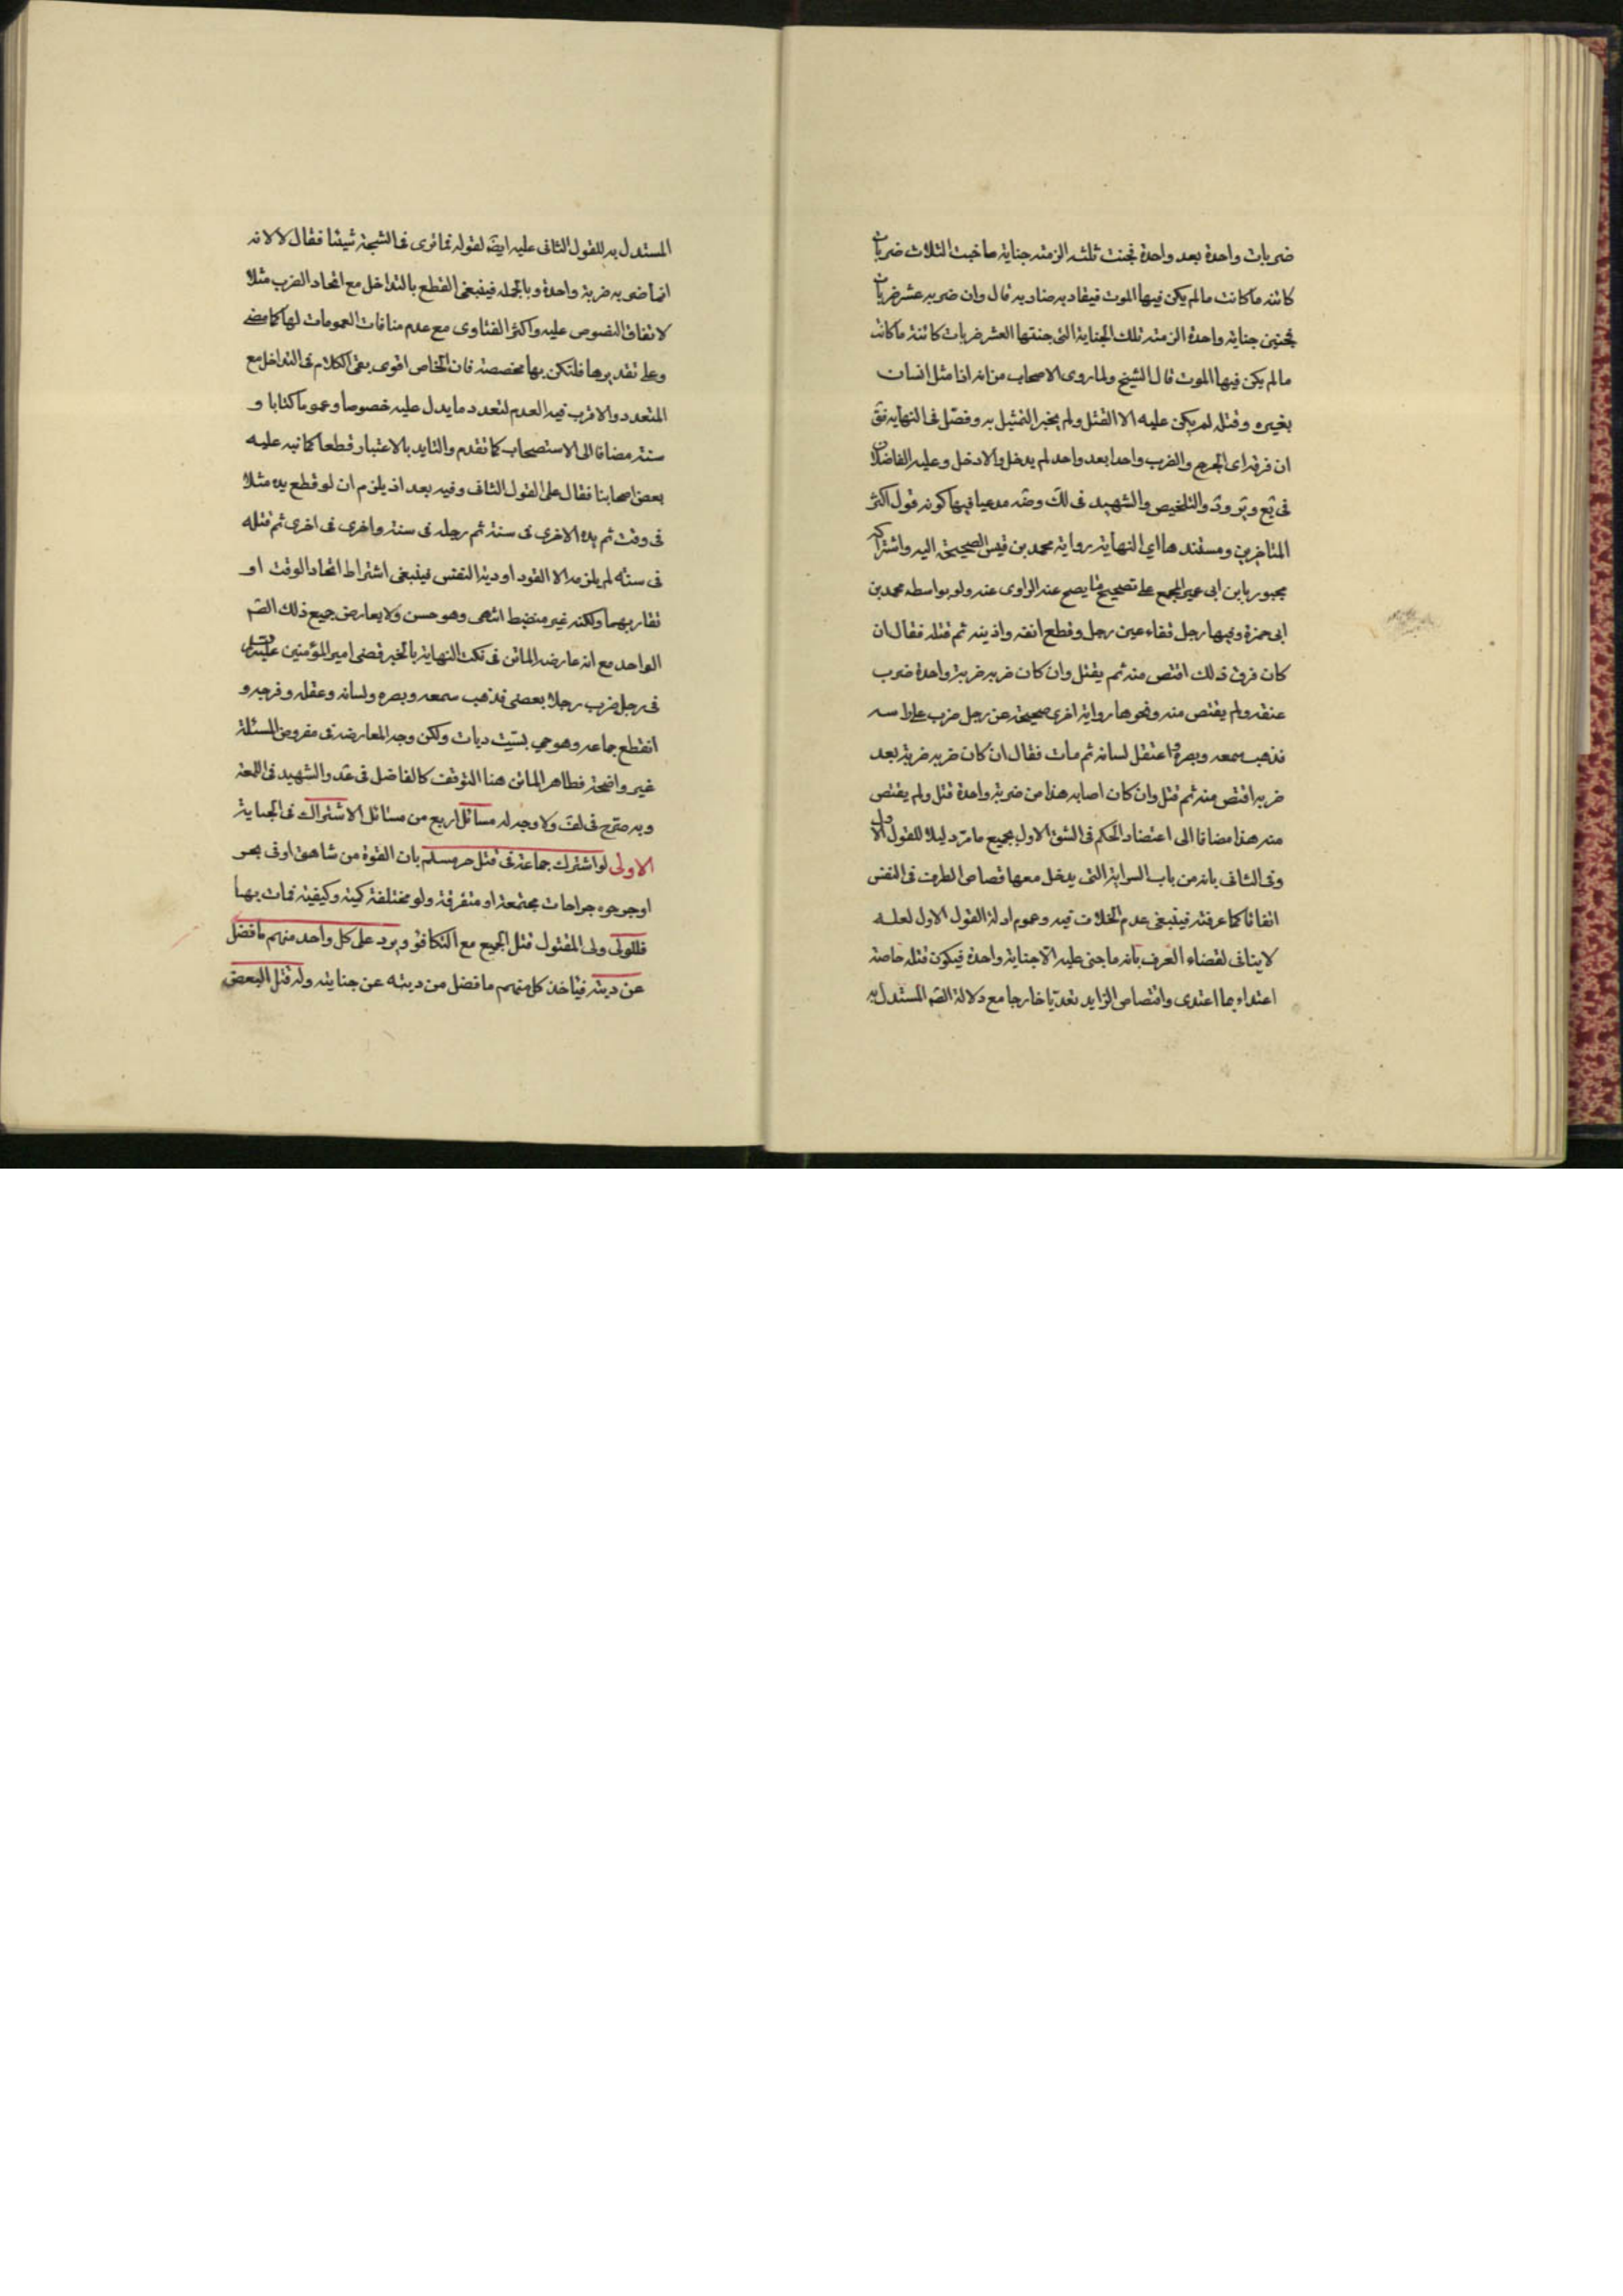 ضربات واحدة بعد واحدة فجنت ثلثه الزمته جناية ما جنت الثلاث ضربات
كائنه ما كانت ما لم يكن فيها الموت فيقاد به ضاربه قال وان ضربه عشر ضربات
فجنين جناية واحدة الزمته تلك الجناية التى جنتها العشر ضربات كائنة ما كانت
ما لم يكن فيها الموت قال الشيخ ولما روى الاصحاب من انه اذا مثل انسان
بغيره وقتله لم يكن عليه الا القتل ولم يجز التمثيل به وفصّل فى النهاية فقَ
ان فرقه اى الجرح والضرب واحدا بعد واحد لم يدخل والا دخل وعليه الفاضلان
فى يع وير ود والتلخيص والشهيد فى لك وضه مدعيا فيها كونه قول اكثر
المتاخرين ومستندها اي النهاية رواية محمد بن قيس الصحيحة اليه واشتراكه
مجبور بابن ابى عمير المجمع على تصحيح ما يصح عنه الراوى عنه ولو بواسطه محمد بن
ابى حمزة وفيها رجل فقاء عين رجل وقطع انفه واذنيه ثم قتله فقال ان
كان فرق ذلك اقتص منه ثم يقتل وان كان ضربه ضربة واحدة ضرب
عنقه ولم يقتص منه ونحوها رواية اخرى صحيحة عن رجل ضرب على راسه
فذهب سمعه وبصره واعتقل لسانه ثم مات فقال ان كان ضربه ضربة بعد
ضربه اقتص منه ثم قتل وان كان اصابه هذا من ضربة واحدة قتل ولم يقتص
منه هذا مضافا الى اعتضاد الحكم فى الشق الاول بجميع ما مرّ دليلا للقول الاول
وفى الثانى بانه من باب السراية التى يدخل معها قصاص الطرف فى النفس
اتفاقا كما عرفته فينبغى عدم الخلاف فيه وعموم ادلة القول الاول لعله
لا ينافى لقضاء العرف بانه ما جنى عليه الا جناية واحدة فيكون قتله خاصة
اعتداء بما اعتدى واقتصاص الزايد تعديا خارجا مع دلالة الصَ المستدل به
المستدل به للقول الثانى عليه ايضَ لقوله فما ترى فى الشجة شيئا فقال لا لانه
انما ضربه ضربة واحدة وبالجمله فينبغى القطع بالتداخل مع اتحاد الضرب مثلا
لاتفاق النصوص عليه واكثر الفتاوى مع عدم منافات العمومات لها كما مضى
وعلى تقديرها فلتكن بها مخصصة فان الخاص اقوى بقى الكلام فى التداخل مع
المتعدد والاقرب فيه العدم لتعدد ما يدل عليه خصوصا وعموما كتابا و
سنة مضافا الى الاستصحاب كما تقدم والتايد بالاعتبار قطعا كما نبه عليه
بعض اصحابنا فقال على القول الثانى وفيه بعد اذ يلزم ان لو قطع يده مثلا
فى وقت ثم يده الاخرى فى سنة ثم رجله فى سنة واخرى فى اخرى ثم قتله
فى سنة لم يلزمه الا القود او دية النفس فينبغى اشتراط اتحاد الوقت او
تقاربهما ولكنه غير منضبط انتهى وهو حسن ولا يعارض جميع ذلك الصَ
الواحد مع انه عارضه الماتن فى نكت النهاية بالخبر قضى امير المؤمنين
فى رجل ضرب رجلا بعصى فذهب سمعه وبصره ولسانه وعقله وفرجه و
انقطع جماعه وهو حي بستّ ديات ولكن وجه المعارضه فى مفروض المسئلة
غير واضحة فظاهر الماتن هنا التوقف كالفاضل فى عد والشهيد فى اللمعة
وبه صرّح فى لف ولا وجه له مسائل اربع من مسائل الاشتراك فى الجناية
الاولى لو اشترك جماعة فى قتل حر مسلم بان القوه من شاهق او فى بحر
او جرحوه جراحات مجتمعة او متفرقة ولو مختلفة كمية وكيفية فمات بها
فللولى ولى المقتول قتل الجميع مع التكافؤ ويرد على كل واحد منهم ما فضل
عن ديته فياخذ كل منهم ما فضل من ديته عن جنايته وله قتل البعض